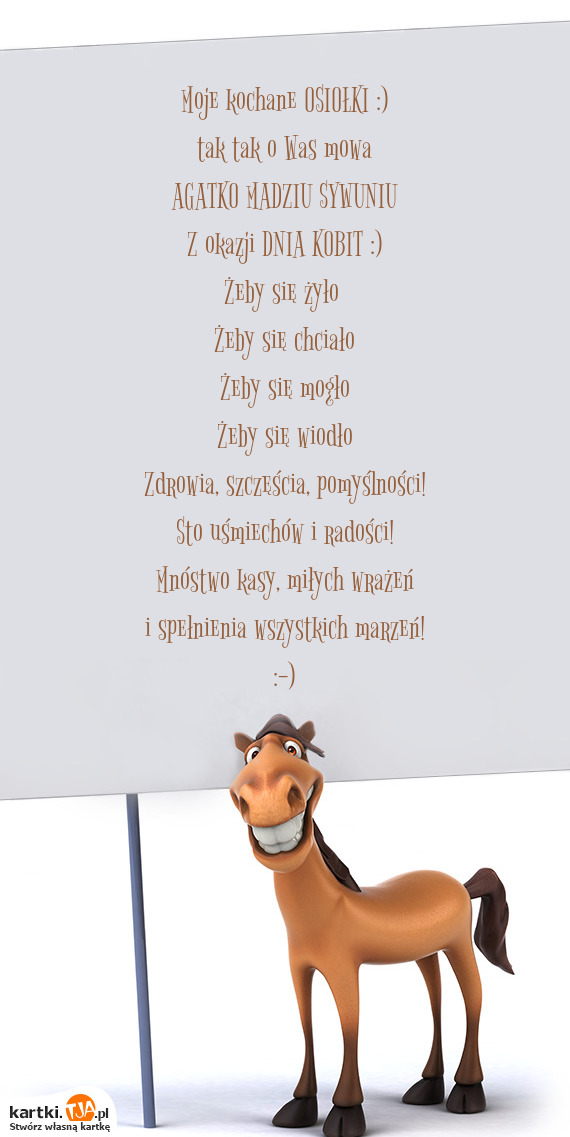 Moje kochane OSIOŁKI :)
tak tak o Was mowa
AGATKO MADZIU SYWUNIU
Z okazji DNIA KOBIT :)
Żeby się żyło
Żeby się chciało
Żeby się mogło
Żeby się wiodło
Zdrowia, szczęścia, pomyślności!
Sto uśmiechów i radości!
Mnóstwo kasy, miłych wrażeń
i spełnienia wszystkich marzeń!
:-)
kartki.TJA.pl
Stwórz własną kartkę